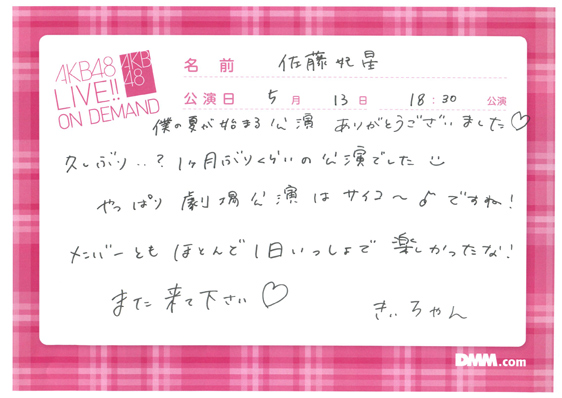 AKB48
LIVE!!
ON DEMAND
AKB
48
名前 佐藤妃星
公演日 5月 13日 18:30 公演
僕の夏が始まる公演 ありがとうございました♡
久しぶり..?1ヶ月ぶりくらいの公演でした
やっぱり劇場公演はサイコ〜♪ですね!
メンバーともほとんど1日いっしょで楽しかったな!
また来て下さい♡
きぃちゃん
DMM.com